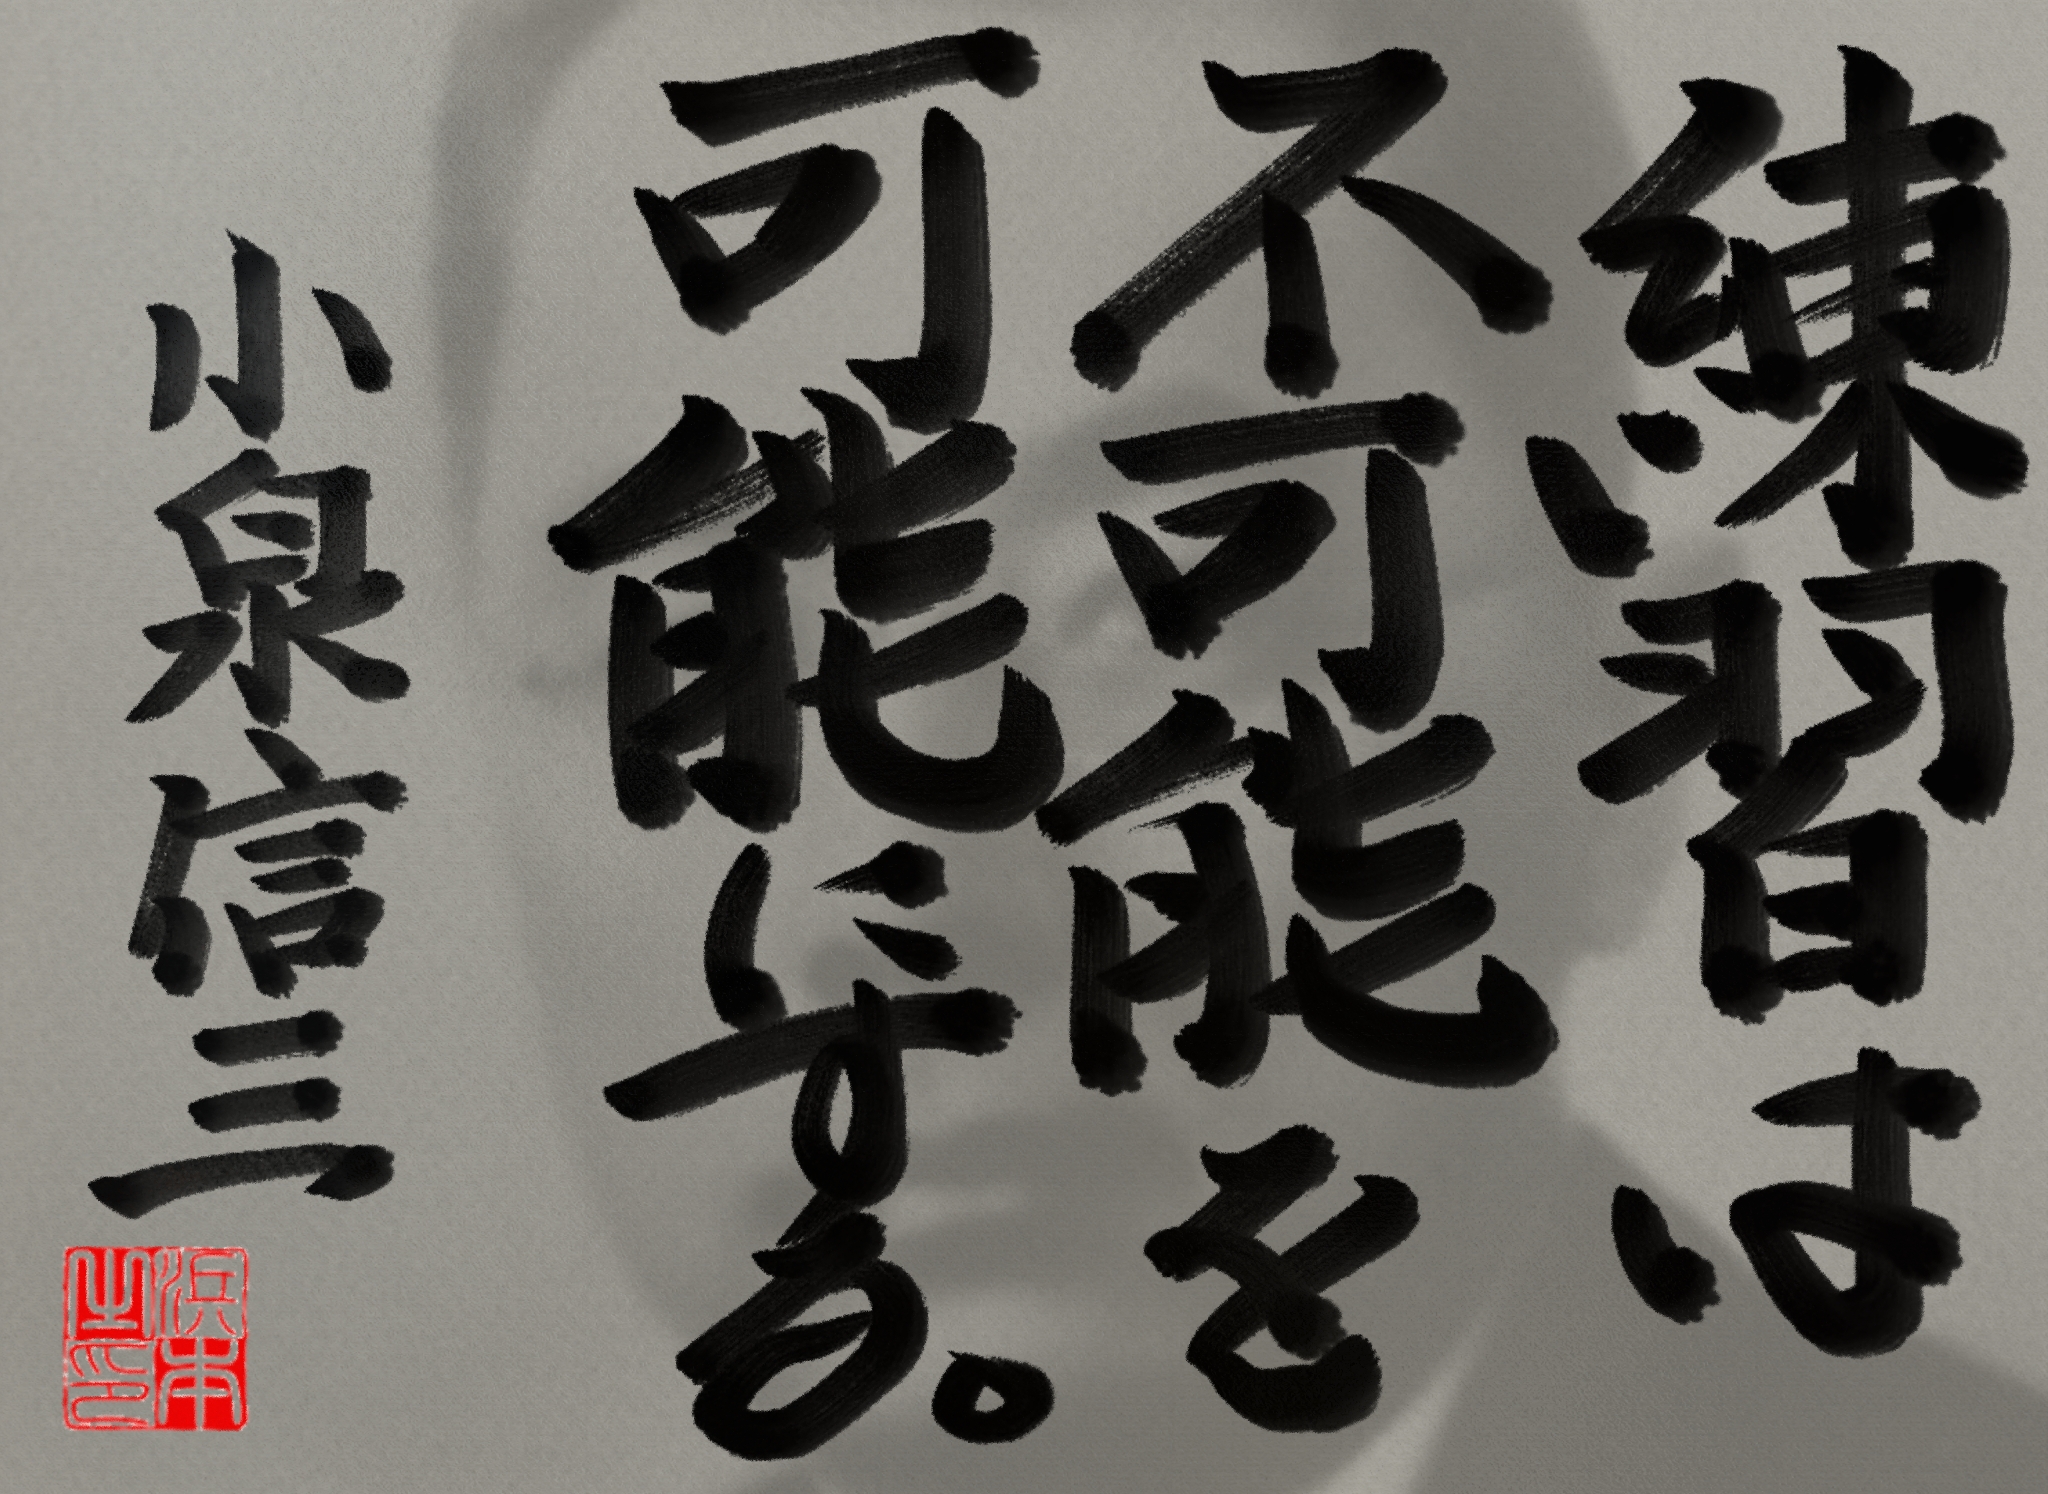 練習は、
不可能を
可能にする。
小泉信三
浜本之印